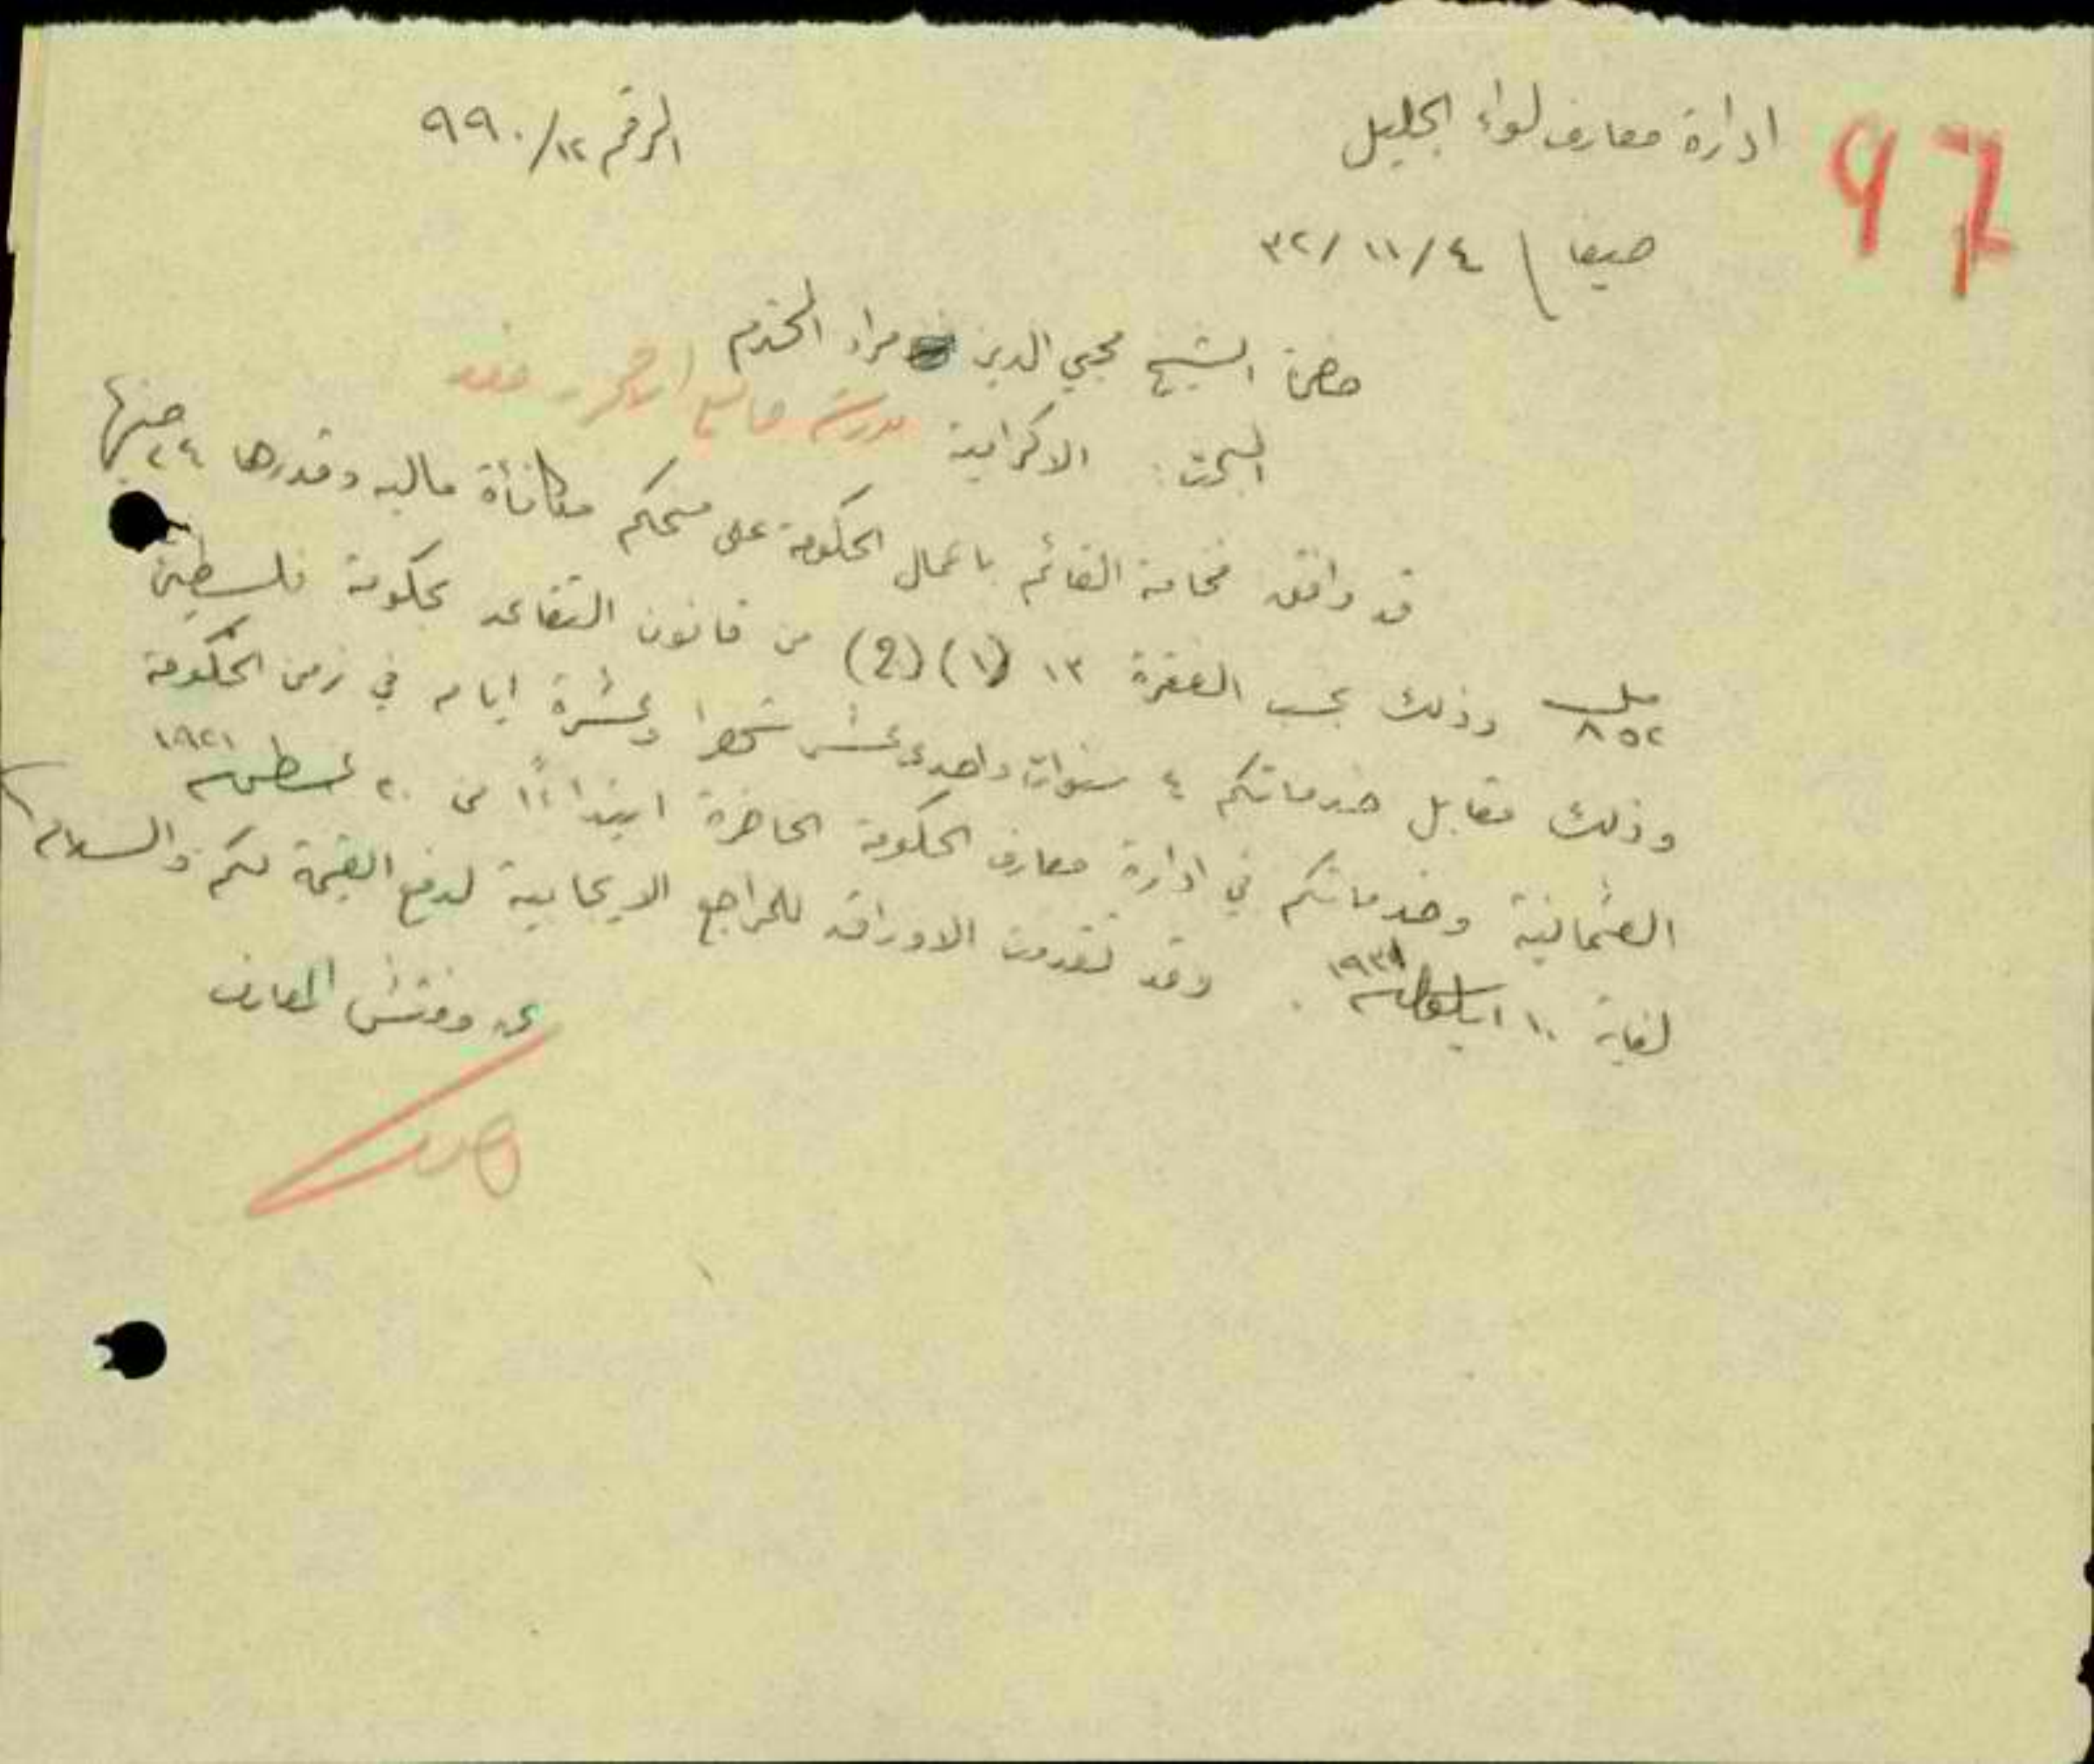 97
ادارة معارف لواء الجليل
الرقم ١٢/ ٩٩٠
حيفا / ٤/ ١١/ ٣٢
حضرة الشيخ محيي الدين مراد المحترم
البحث: الاكرامية مدرسة
قد وافق فخامة القائم باعمال الحكومة على منحكم مكافأة ماليه وقدرها ٢٤ جنيها
٨٥٢ مل وذلك بحسب الفقرة ١٣ (١) (2) من قانون التقاعد بحكومة فلسطين
وذلك مقابل خدماتكم ٤ سنوات واحدى عشر شهرا وعشرة ايام في زمن الحكومة
العثمانية وخدماتكم في ادارة معارف الحكومة الحاضرة ابتداءً من ٢٠ غسطس ١٩٢١
لغاية ١٠ ايلول . وقد تقدمت الاوراق للمراجع الايجابية لدفع القيمة لكم والسلام
عن مفتش المعارف